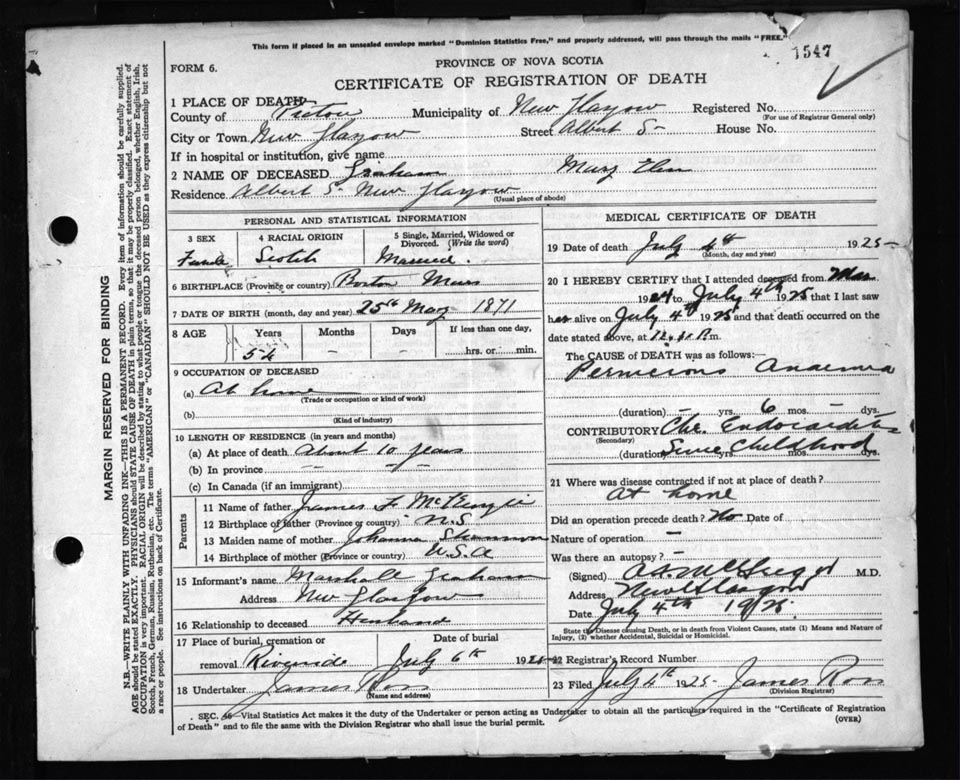 This form if placed in an unsealed envelope marked "Dominion Statistics Free," and properly addressed, will pass through the mails "FREE."
1547
FORM 6.
PROVINCE OF NOVA SCOTIA
CERTIFICATE OF REGISTRATION OF DEATH
1 PLACE OF DEATH
County of Pictou Municipality of New Glasgow Registered No.
(For use of Registrar General only)
City or Town New Glasgow Street Albert S- House No.
If in hospital or institution, give name
2 NAME OF DECEASED Graham Mary Ellen
Residence Albert S- New Glasgow
(Usual place of abode)
PERSONAL AND STATISTICAL INFORMATION
3 SEX 4 RACIAL ORIGIN 5 Single, Married, Widowed or Divorced. (Write the word)
Female Scotch Married.
6 BIRTHPLACE (Province or country) Boston Mass
7 DATE OF BIRTH (month, day and year) 25th May 1871
8 AGE Years Months Days If less than one day,
54 — — ....hrs. or.....min.
9 OCCUPATION OF DECEASED
(a) At home
(Trade or occupation or kind of work)
(b)
(Kind of industry)
10 LENGTH OF RESIDENCE (in years and months)
(a) At place of death About 10 years
(b) In province — — —
(c) In Canada (if an immigrant)
Parents
11 Name of father James F. McKenzie
12 Birthplace of father (Province or country) N.S
13 Maiden name of mother Johanna Shannon
14 Birthplace of mother (Province or country) U.S.A
15 Informant's name Marshall Graham
Address New Glasgow
16 Relationship to deceased Husband
17 Place of burial, cremation or removal Date of burial
Riverside July 6th 1925
18 Undertaker James Ross
(Name and address)
MEDICAL CERTIFICATE OF DEATH
19 Date of death July 4th 1925-
(Month, day and year)
20 I HEREBY CERTIFY that I attended deceased from Mar
1924 to July 4th 1925 that I last saw
her alive on July 4th 1925 and that death occurred on the
date stated above, at P.m.
The CAUSE of DEATH was as follows:
Pernicious Anaemia
(duration) — yrs. 6 mos. — dys.
CONTRIBUTORY Chr. Endocarditis
(Secondary)
(duration) Since Childhood mos. dys.
21 Where was disease contracted if not at place of death?
At home
Did an operation precede death? No Date of
Nature of operation —
Was there an autopsy? —
(Signed) M.D.
Address New Glasgow
Date July 4th 1925
State the Disease causing Death, or in death from Violent Causes, state (1) Means and Nature of
Injury, (2) whether Accidental, Suicidal or Homicidal.
22 Registrar's Record Number
23 Filed July 4th 1925- James Ross
(Division Registrar)
SEC. 46—Vital Statistics Act makes it the duty of the Undertaker or person acting as Undertaker to obtain all the particulars required in the "Certificate of Registration
of Death" and to file the same with the Division Registrar who shall issue the burial permit.
(OVER)
MARGIN RESERVED FOR BINDING
N.B.—WRITE PLAINLY WITH UNFADING INK—THIS IS A PERMANENT RECORD. Every item of information should be carefully supplied.
AGE should be stated EXACTLY. PHYSICIANS should STATE CAUSE OF DEATH in plain terms, so that it may be properly classified. Exact statement of
OCCUPATION is very important. RACIAL ORIGIN will be described by stating to what people or tongue the deceased person belonged, whether English, Irish,
Scotch, French, German, Russian, Ruthenian, etc. The terms "AMERICAN" or "CANADIAN" SHOULD NOT BE USED as they express citizenship but not
a race or people. See instructions on back of Certificate.